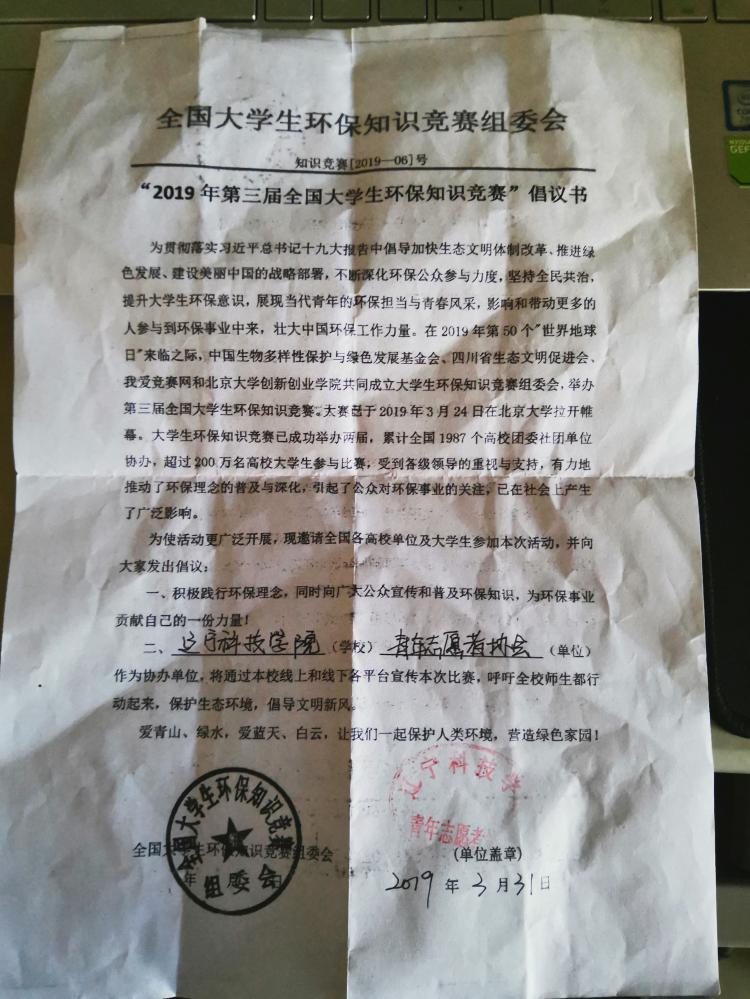 全国大学生环保知识竞赛组委会
知识竞赛[2019—06]号
“2019 年第三届全国大学生环保知识竞赛”倡议书
为贯彻落实习近平总书记十九大报告中倡导加快生态文明体制改革、推进绿
色发展、建设美丽中国的战略部署，不断深化环保公众参与力度，坚持全民共治，
提升大学生环保意识，展现当代青年的环保担当与青春风采，影响和带动更多的
人参与到环保事业中来，壮大中国环保工作力量。在 2019 年第 50 个"世界地球
日"来临之际，中国生物多样性保护与绿色发展基金会、四川省生态文明促进会、
我爱竞赛网和北京大学创新创业学院共同成立大学生环保知识竞赛组委会，举办
第三届全国大学生环保知识竞赛。大赛已于 2019 年 3 月 24 日在北京大学拉开帷
幕。大学生环保知识竞赛已成功举办两届，累计全国 1987 个高校团委社团单位
协办，超过 200 万名高校大学生参与比赛，受到各级领导的重视与支持，有力地
推动了环保理念的普及与深化，引起了公众对环保事业的关注，已在社会上产生
了广泛影响。
为使活动更广泛开展，现邀请全国各高校单位及大学生参加本次活动，并向
大家发出倡议：
一、积极践行环保理念，同时向广大公众宣传和普及环保知识，为环保事业
贡献自己的一份力量！
二、辽宁科技学院（学校）青年志愿者协会（单位）
作为协办单位，将通过本校线上和线下各平台宣传本次比赛，呼吁全校师生都行
动起来，保护生态环境，倡导文明新风。
爱青山、绿水，爱蓝天、白云，让我们一起保护人类环境，营造绿色家园！
全国大学生环保知识竞赛
组委会
辽宁科技学
青年志愿者
全国大学生环保知识竞赛组委会
（单位盖章）
年 日
2019 年 3 月 31 日